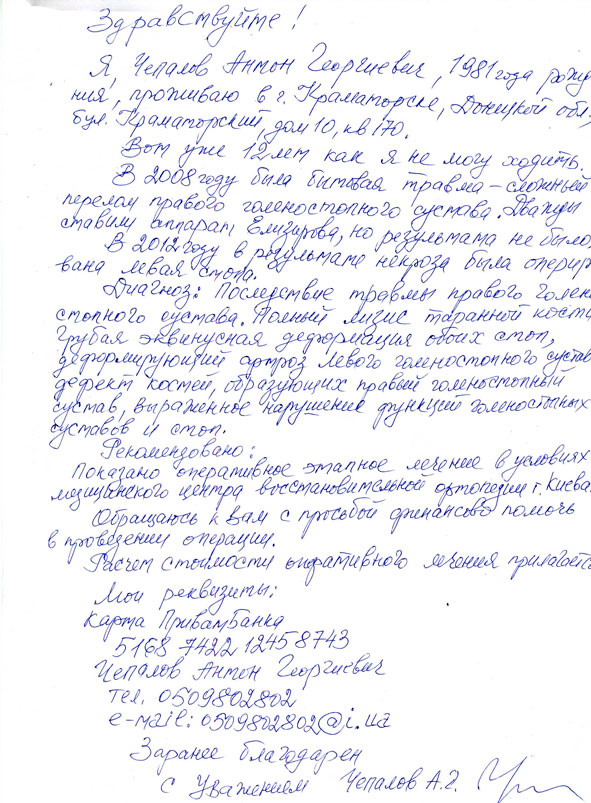 Здравствуйте!
Я, Чепалов Антон Георгиевич, 1981 года рожде
ния, проживаю в г. Краматорске, Донецкой обл.,
бул. Краматорский, дом 10, кв 170.
Вот уже 12 лет как я не могу ходить.
В 2008 году была бытовая травма – сложный
перелом правого голеностопного сустава. Дважды
ставили аппарат Елизарова, но результата не было.
В 2012 году в результате некроза была опериро
вана левая стопа.
Диагноз: Последствие травмы правого голено
стопного сустава. Полный лизис таранной кости.
Грубая эквинусная деформация обоих стоп,
деформирующий артроз левого голеностопного сустава
дефект костей, образующих правый голеностопный
сустав, выраженное нарушение функций голеностопных
суставов и стоп.
Рекомендовано:
Показано оперативное этапное лечение в условиях
медицинского центра восстановительной ортопедии г. Киева.
Обращаюсь к вам с просьбой финансово помочь
в проведении операции.
Расчет стоимости оперативного лечения прилагается
Мои реквизиты:
Карта ПриватБанка
5168 7422 12458743
Чепалов Антон Георгиевич
тел. 0509802802
e-mail: 0509802802@i.ua
Заранее благодарен
с Уважением Чепалов А.Г.